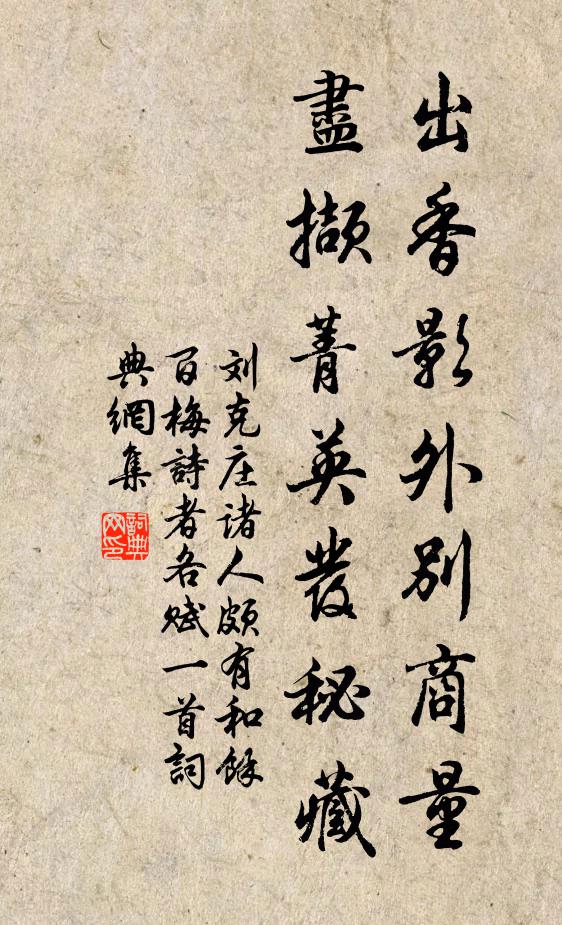 出香影外別商量
盡擷菁英發秘藏
刘克庄诸人頗有和餘
百梅詩者各赋一首詞
典網集
詞典
网印